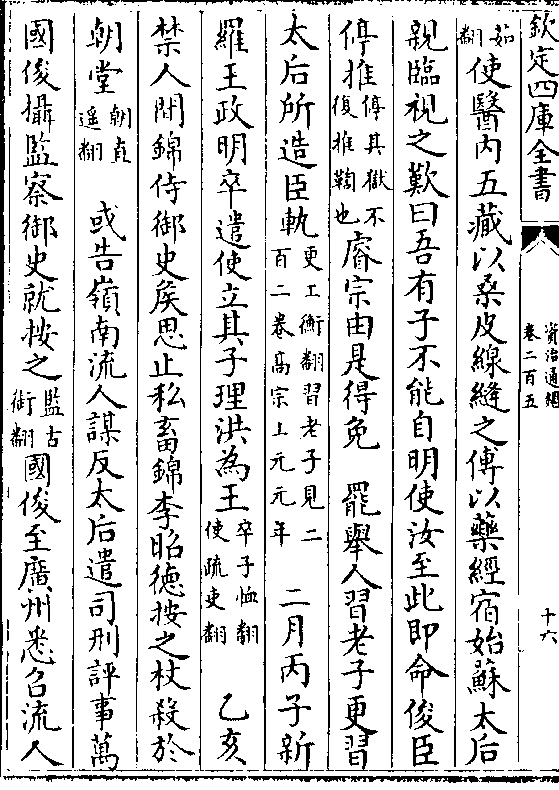 欽定四庫全書
資治通鑑
卷二百五
十六
茹翻使醫内五藏以桑皮線縫之傅以藥經宿始蘇太后
親臨視之歎曰吾有子不能自明使汝至此即命俊臣
停推停其獄不復推鞫也睿宗由是得免　罷舉人習老子更習
太后所造臣軌更工衡翻習老子見二百二卷髙宗上元元年　二月丙子新
羅王政明卒遣使立其子理洪為王卒子恤翻使疏吏翻　乙亥
禁人間錦侍御史矦思止私畜錦李昭徳按之杖殺於
朝堂朝直遥翻　或告嶺南流人謀反太后遣司刑評事萬
國俊攝監察御史就按之監古銜翻國俊至廣州悉召流人